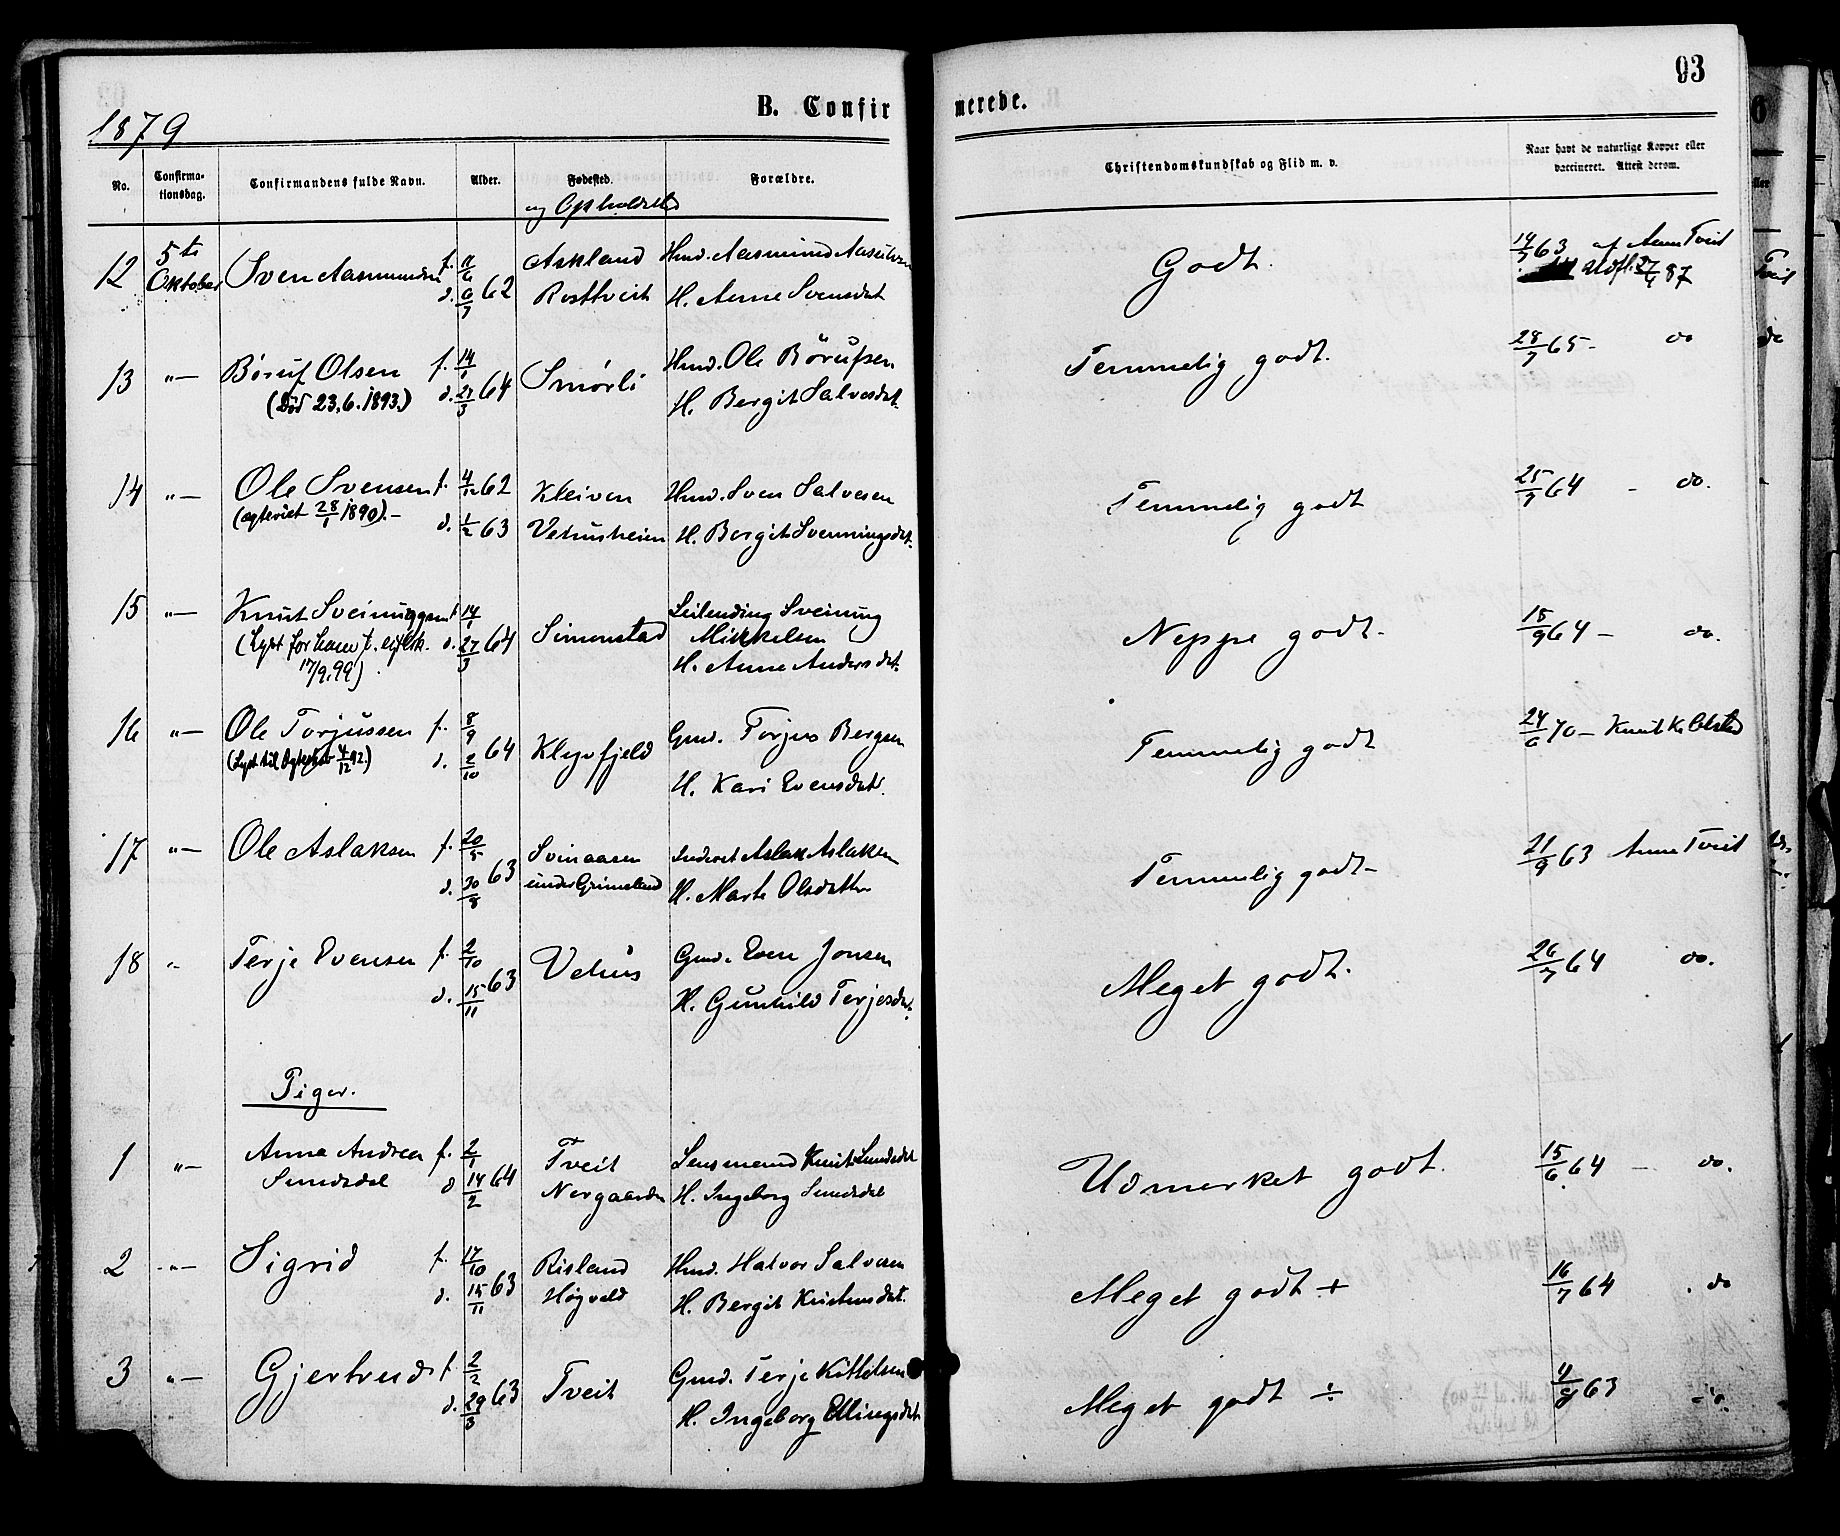 93
1879
B. Confirmerede.
No.
Confirma-
tionsdag.
Confirmandens fulde Navn.
Alder.
Fødested.
og Opholdsted
Forældre.
Christendomskundskab og Flid m. v.
Naar havt de naturlige Kopper eller
vaccineret. Attest derom.
12 5te Oktober Sven Aasmundsen f. 11/6 d. 6/7 62 Askland Rosttveit Hmd. Aasmund H. Anne Svensdat Godt. 14/7 63 af Anne Tveit
87
13 "— Børuf Olsen f. 14/1 d. 27/3 64 Smørli Hmd. Ole Børufsen H. Bergit Salvesdat. Temmelig godt. 28/7 65- do
(Død 23.6.1893.)
14 "— Ole Svensen f. 4/12 62 d. 1/2 63 Kleiven Vehusheien Hmd. Sven Salvesen H. Bergit Svenningsdat. Temmelig godt 25/7 64 - do.
(ægteviet 28/1 1890).-
15 "— Knut Sveinuggsen f. 14/1 d. 27/3 64 Simonstad Leilending Sveinung Mikkelsen H. Anne Andersdat. Neppe godt. 15/9 64 - do.
(Lyst for ham t. 17/9.99)
16 "— Ole Torjussen f. 8/9 d. 2/10 64 Kleyvfjeld Gmd. Torjus Bergsen H. Kari Evensdat. Temmelig godt 24/6 70 - Knut K. Ølsted
(Lyst til Ægteskab 4/12 92.)
17 "— Ole Aslaksen f. 20/5 d. 30/8 63 Svinaasen under Grimeland Inderst Aslak Aslaksen H. Marte Olsdatter Temmelig godt- 21/9 63 Anne Tveit
18 " Terje Evensen f. 2/10 d. 15/11 63 Vehus Gmd. Even Jonsen H. Gunhild Terjesdat. Meget godt. 26/7 64 do.
Piger.
1 "— Anna Andrea Sundsdal f. 2/1 d 14/2 64 Tveit Norgaarden Lensmand Knut Sundsdal H. Ingeborg Sundsdal Udmerket godt. 15/6 64 - do.
2 "— Sigrid f. 17/10 d. 15/11 63 Risland Høgveld Hmd. Halvor Salvesen H. Bergit Kristensdat. Meget godt + 16/7 64 . do
3 "— Gjertrud f. 2/2 d. 29/3 63 Tveit Gmd. Terje Kittilsen H. Ingeborg Ellingsdat. Meget godt ÷ 4/8 63 do.